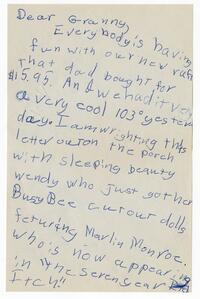 Dear Granny,
Everybody is having
fun with our new raft
that dad bought for
$15.95. And we had it very
a very cool 103° yesterd
day. I am wrighting this
letter out on the porch
with sleeping beauty
wendy who just got her
Busy Bee cut our dolls
feturing Marlin Monroe.
who's now appearing
in "the seven year
Itch"